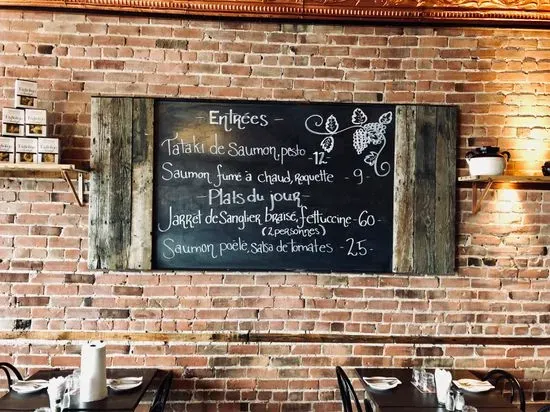 - Entrées -
Tataki de Saumon, pesto - 12 -
Saumon fumé à chaud, roquette - 9 -
- Plats du jour -
Jarret de Sanglier braisé, fettuccine - 60 -
(2 personnes)
Saumon poêlé, salsa de tomates - 25 -